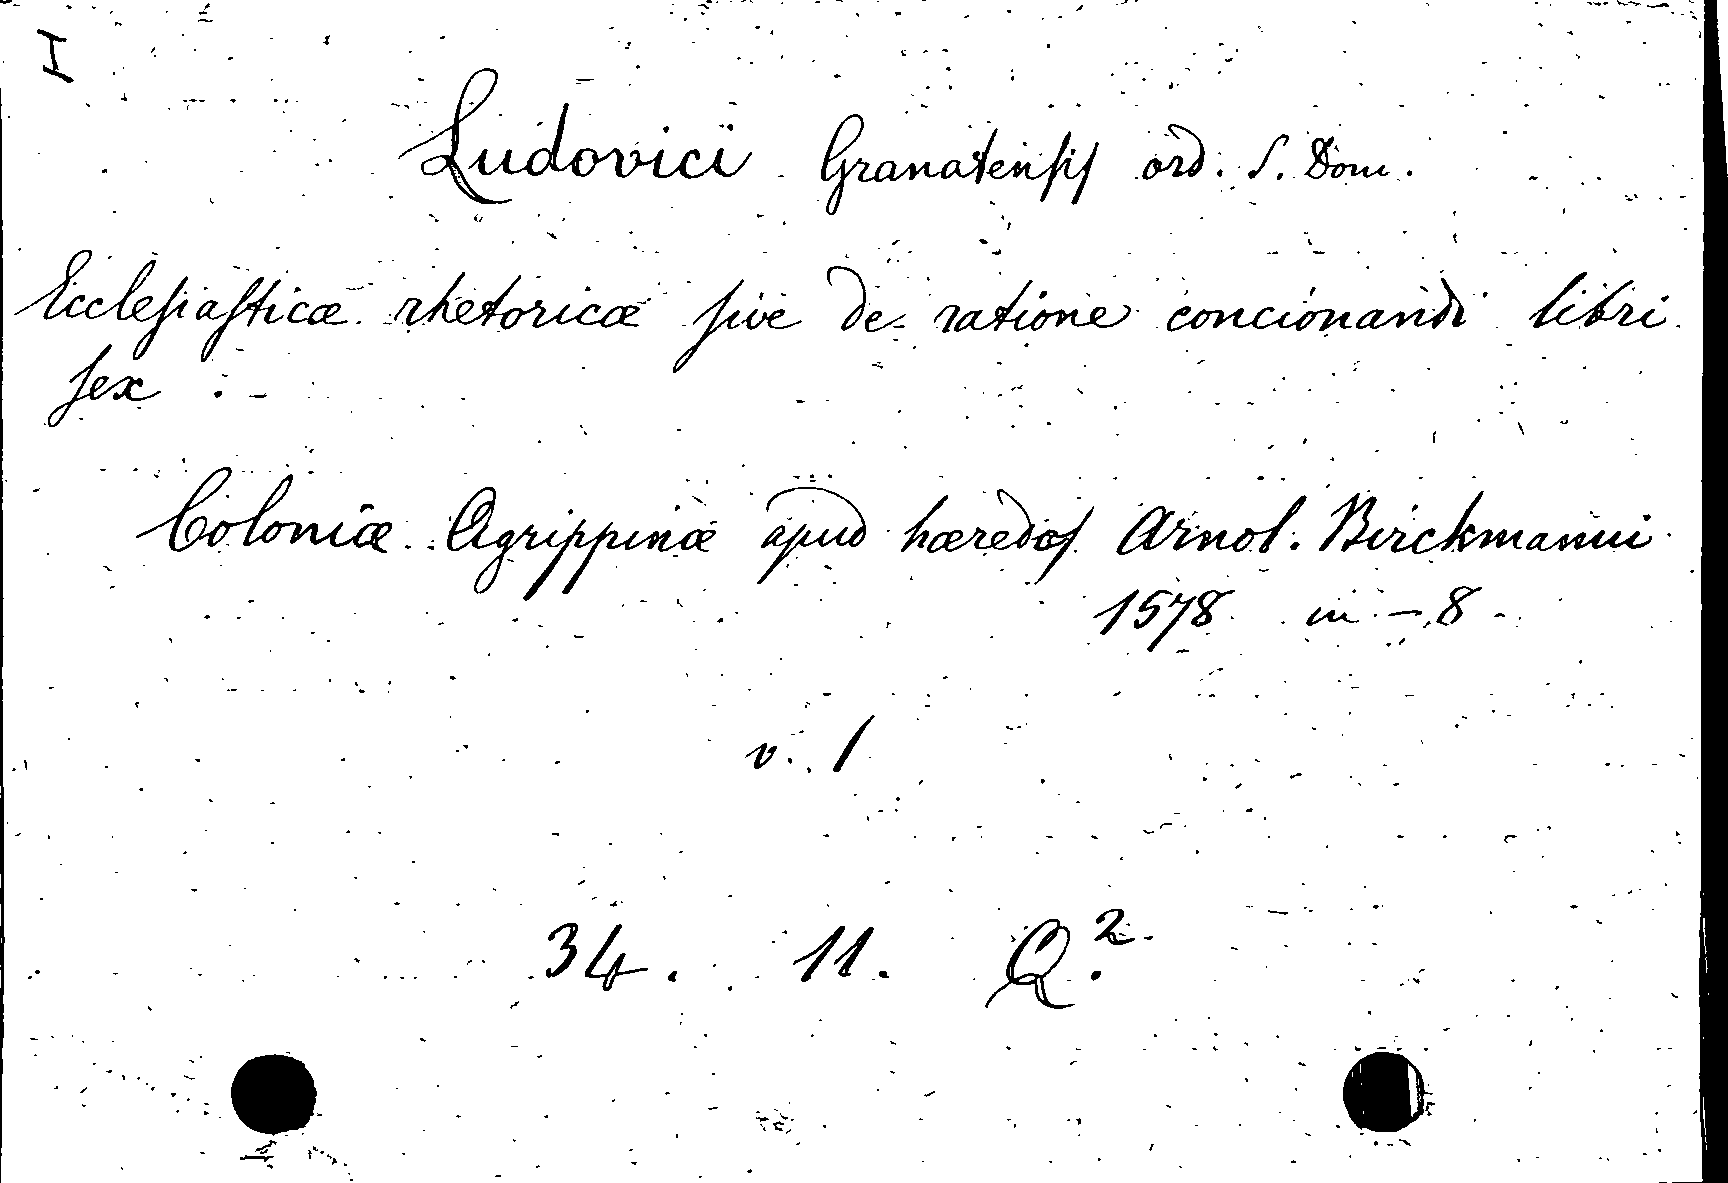 I
Ludovici Granatensis ord. S. Dom.
Ecclesiasticæ rhetoricæ sive de ratione concionandi libri
sex.
Coloniæ Agrippinæ apud hæredes Arnol. Birckmanni
1578 in - 8
v. 1
34. 11. Q.²